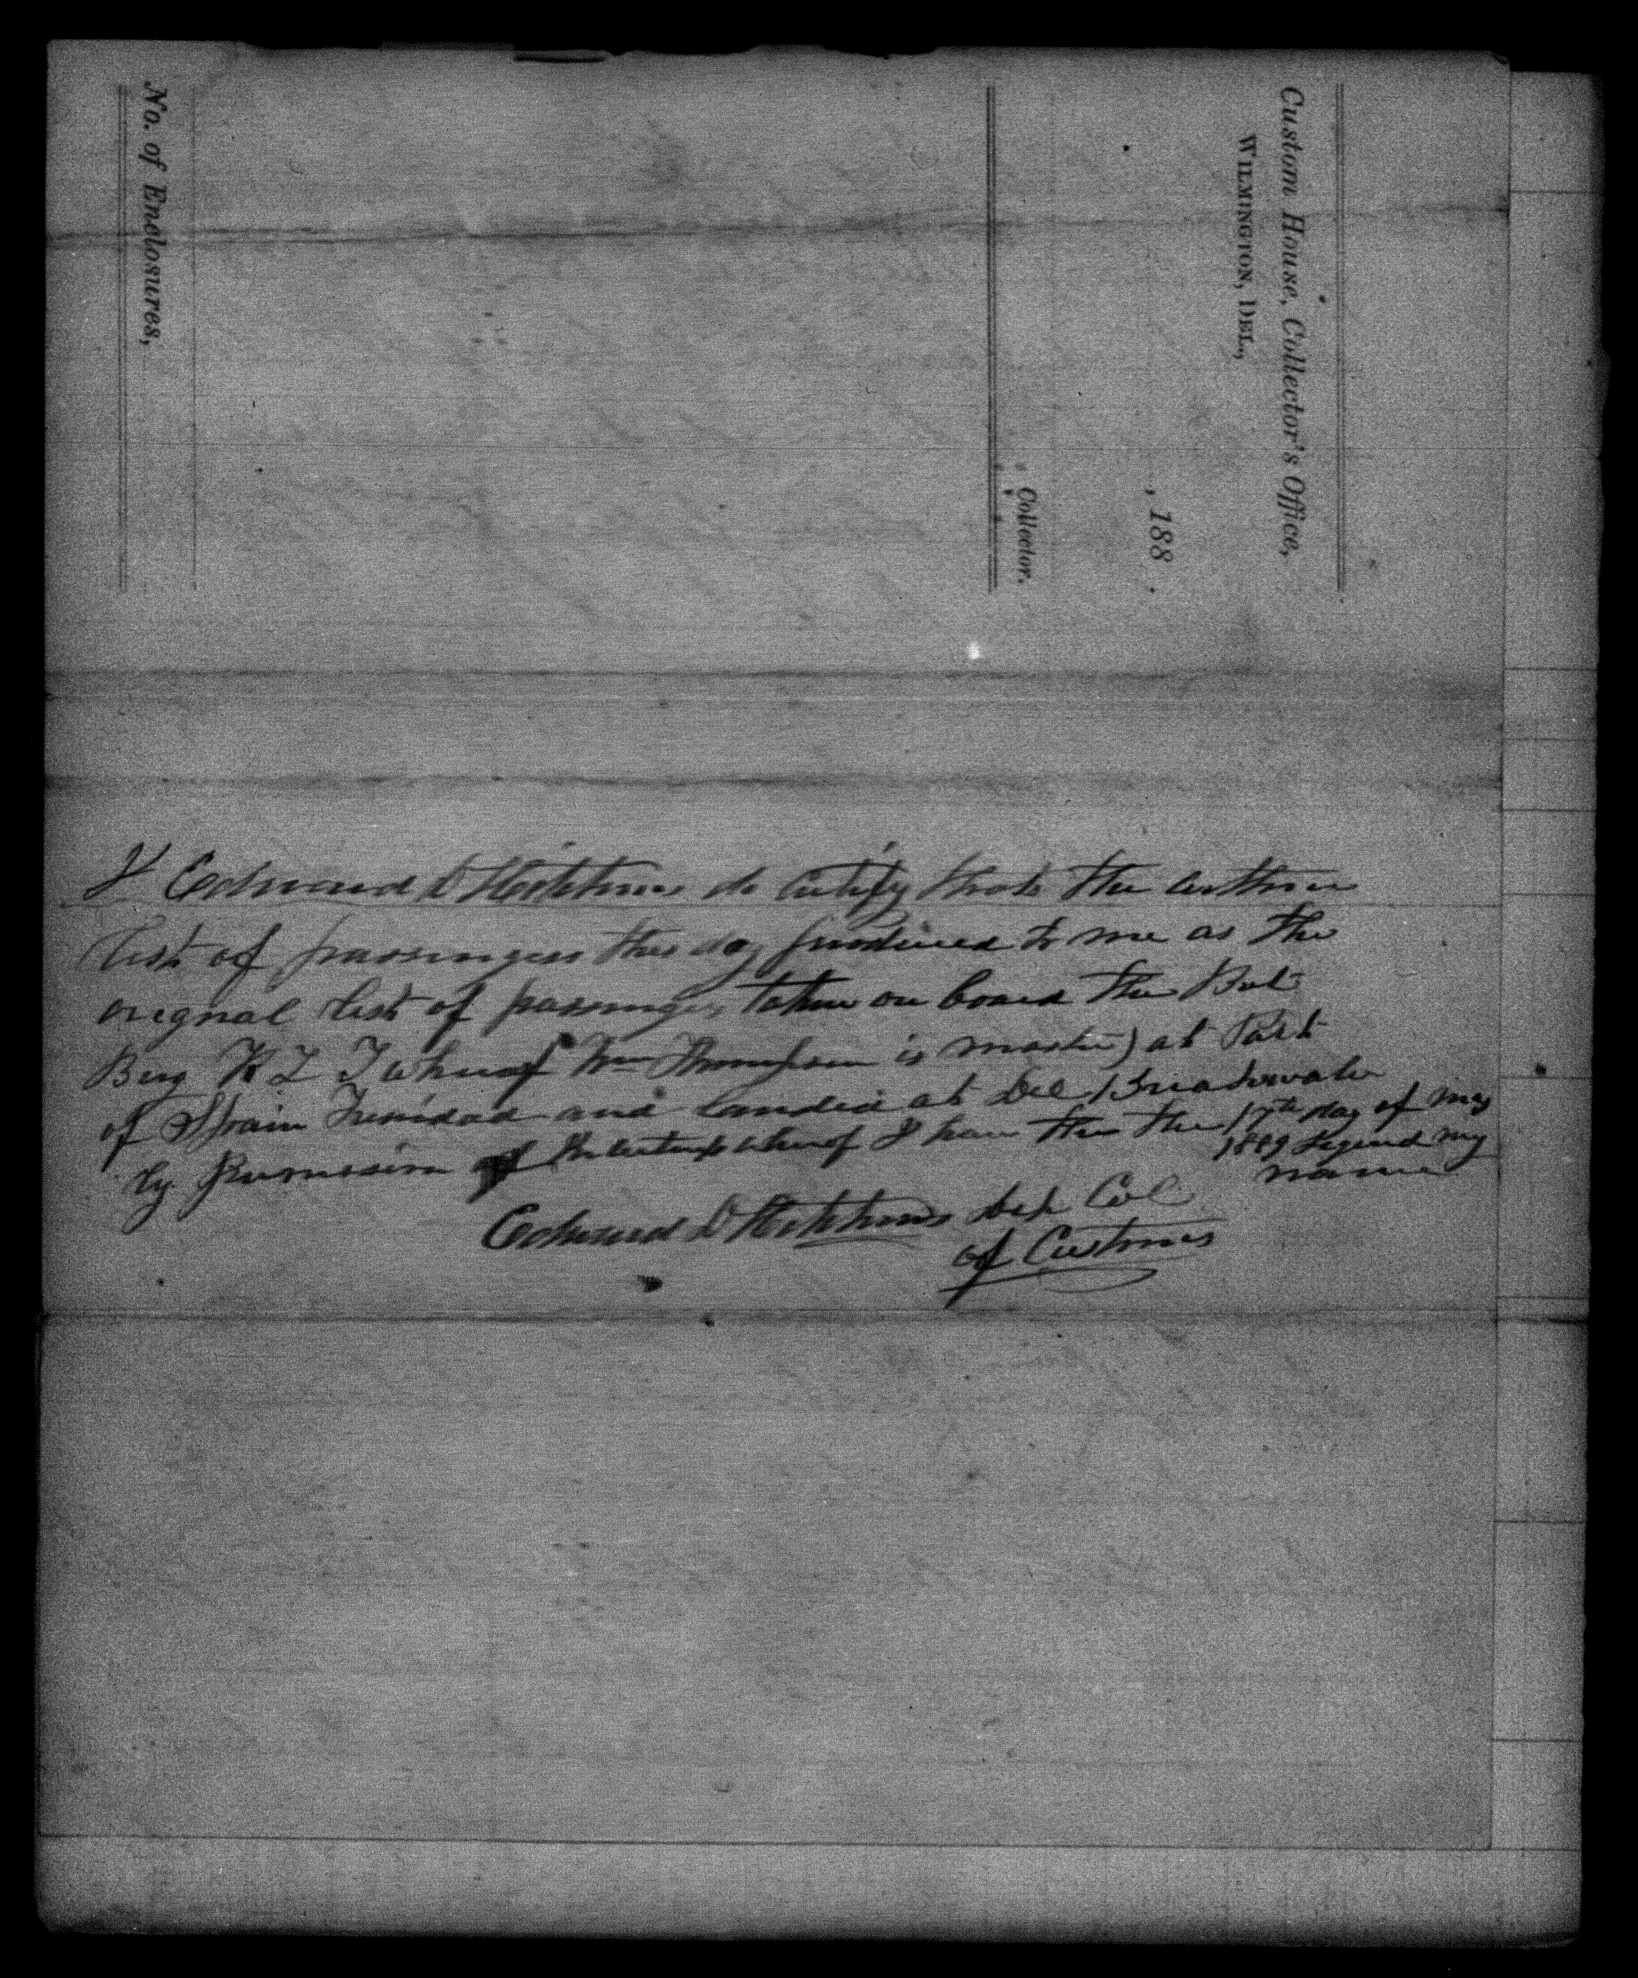 Custom House, Collector's Office,
WILMINGTON, DEL.,
, 188 .
Collector.
No. of Enclosures,
I Edward D Hitchens do Certify that the within
list of passengers this day produced to me as the
orignal list of passenges taken on board the
Brig whereof Wm Thompson is master) at Port
of Spain Trinidad and landed at Del Breakwater
by Permission of whereof I have the the 17th day of May
1889 Signed my
name
Edward D Hitchens Dep Col
of Customs